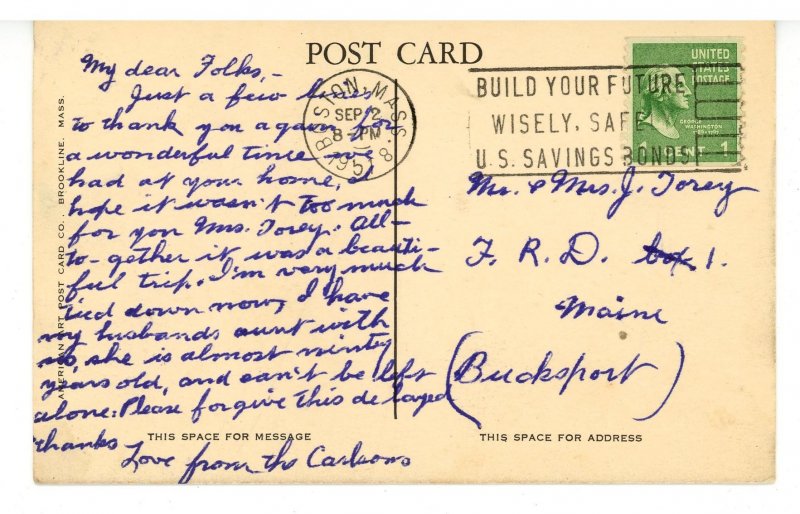 POST CARD
My dear Folks,-
Just a few lines
to thank you again for
a wonderful time we
had at your home, I
hope it wasn't too much
for you Mrs. Torey. All-
to-gether it was a beauti-
ful trip. I'm very much
tied down now, I have
my husbands aunt with
us, she is almost ninty
years old, and can't be left
alone. Please forgive this delayed
thanks
Love from the Carlsons
THIS SPACE FOR MESSAGE
AMERICAN ART POST CARD CO., BROOKLINE, MASS.
BOSTON, MASS.
SEP 2
8-PM
195
8
BUILD YOUR FUTURE
WISELY, SAFE
U.S. SAVINGS BONDS
UNITED
STATES
POSTAGE
GEORGE
WASHINGTON
CENT 1
Mr. & Mrs. J. Torey
F. R. D. box 1.
Maine
(Bucksport)
THIS SPACE FOR ADDRESS